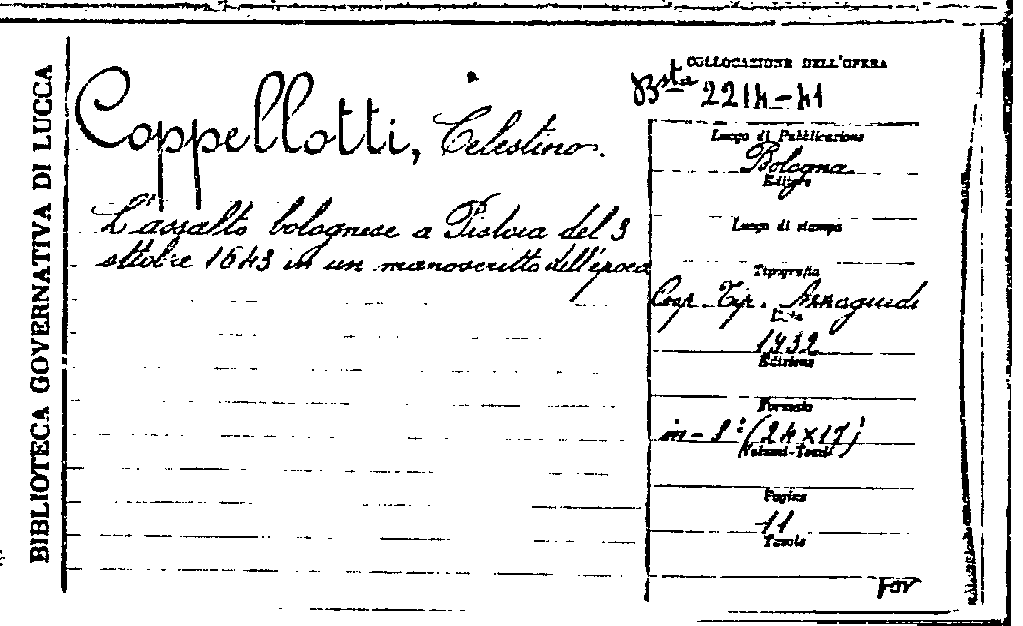 BIBLIOTECA GOVERNATIVA DI LUCCA
Coppellotti, Celestino.
L'assalto bolognese a Pistoia del 3
ottobre 1643 in un manoscritto dell'epoca
COLLOCAZIONE DELL'OPERA
Bsta 2214-41
Luogo di Pubblicazione
Bologna
Editore
Luogo di stampa
Tipografia
Coop. Tip. Azzoguidi
Data
1932
Edizione
Formato
in-8° (24×17)
Volumi-Tomi
Pagine
11
Tavole